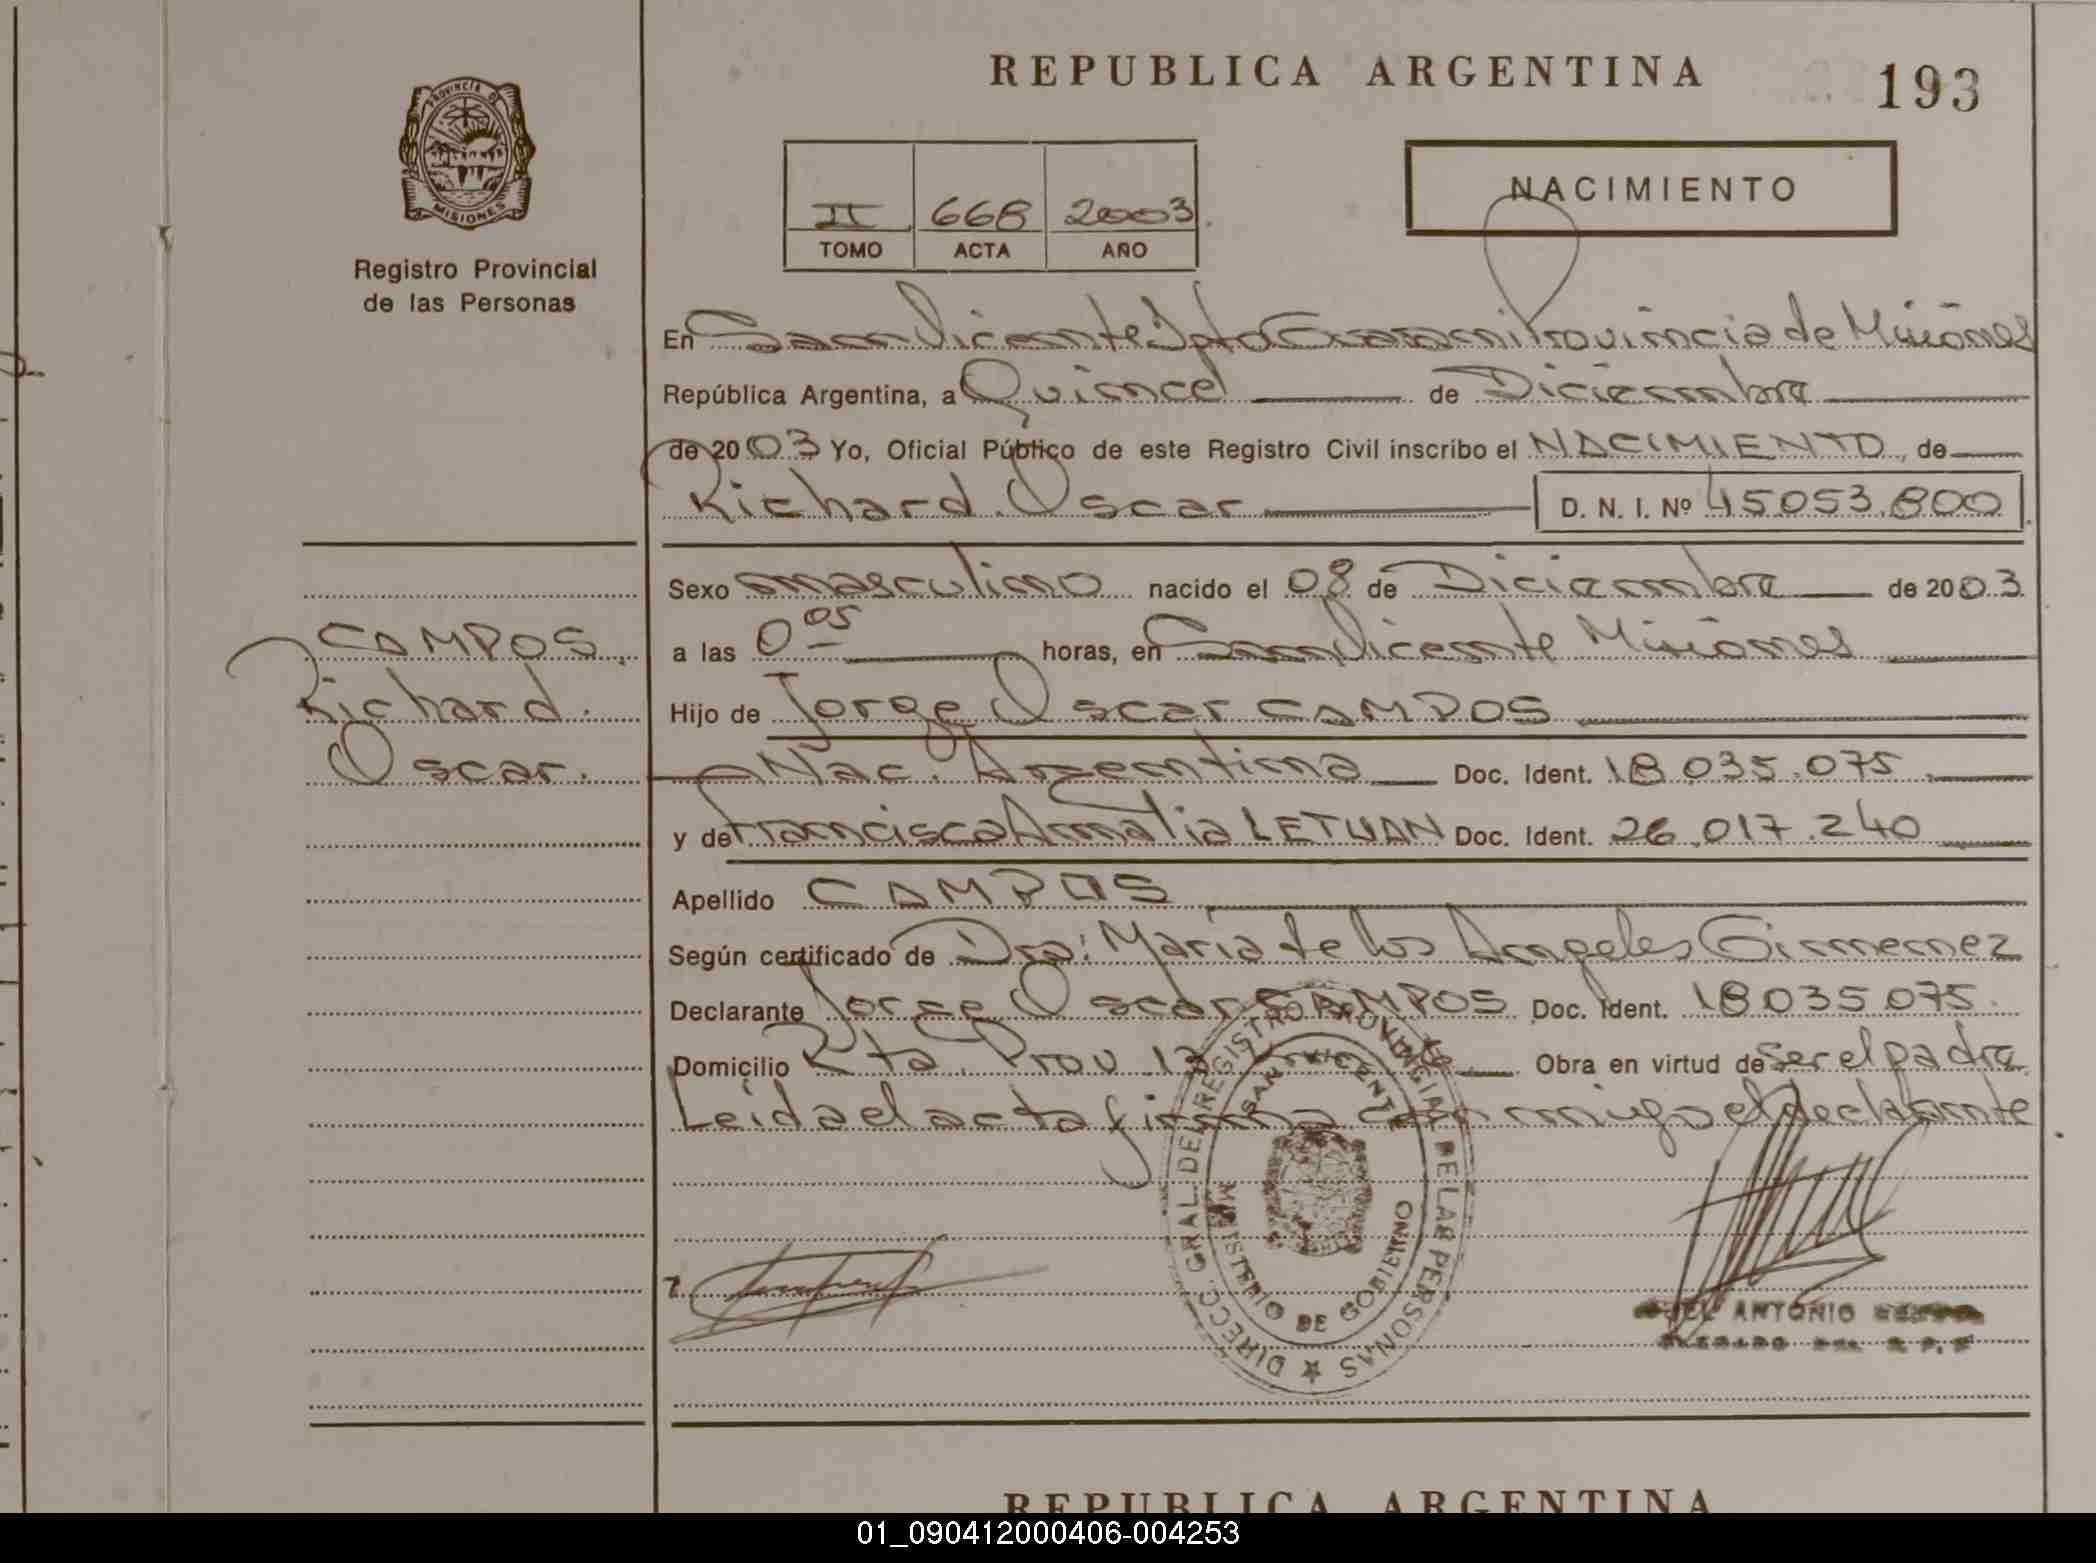 REPUBLICA ARGENTINA
193
PROVINCIA DE
MISIONES
Registro Provincial
de las Personas
II 668 2003
TOMO ACTA AÑO
NACIMIENTO
En San Vicente Dpto Guarani Provincia de Misiones
República Argentina, a Quince de Diciembre
de 2003 Yo, Oficial Público de este Registro Civil inscribo el NACIMIENTO, de
Richard Oscar D. N. I. Nº 45053.800
Sexo masculino nacido el 08 de Diciembre de 2003
CAMPOS
Richard
Oscar.
a las 0 05 horas, en San Vicente Misiones
Hijo de Jorge Oscar CAMPOS
Nac. Argentina Doc. Ident. 18.035.075
y de Francisca Amalia LETUAN Doc. Ident. 26.017.240
Apellido CAMPOS
Según certificado de Dra: Maria de los Angeles Gimenez
Declarante Jorge Oscar CAMPOS Doc. Ident. 18035075.
Domicilio Rta. Prov. 13 Obra en virtud de ser el padre
Leida el acta firma con migo el declarante
DIRECC. GRAL. DEL REGISTRO PROVINCIAL DE LAS PERSONAS
SAN VICENTE
MINISTERIO DE GOBIERNO
ANTONIO
REPUBLICA ARGENTINA
01_090412000406-004253